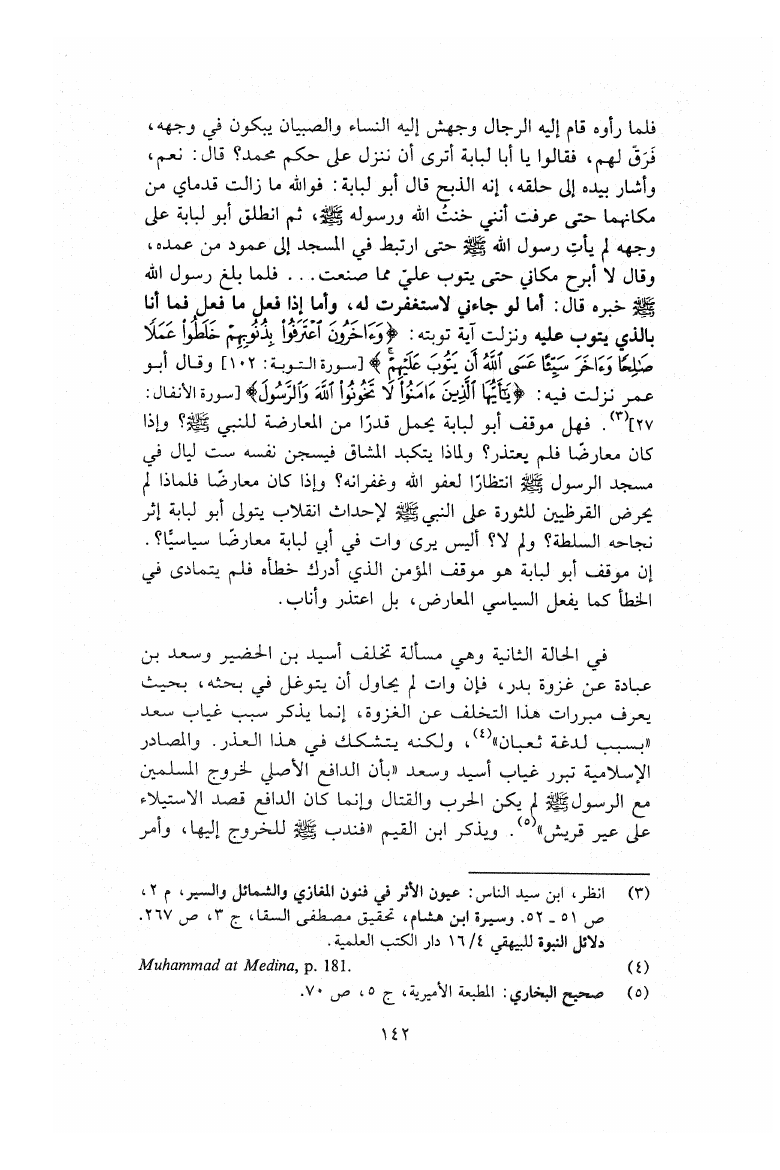 فلما رأوه قام إليه الرجال وجهش إليه النساء والصبيان يبكون في وجهه،
فَرَقّ لهم، فقالوا يا أبا لبابة أترى أن ننزل على حكم محمد؟ قال: نعم،
وأشار بيده إلى حلقه، إنه الذبح قال أبو لبابة: فوالله ما زالت قدماي من
مكانهما حتى عرفت أنني خنتُ الله ورسوله ﷺ، ثم انطلق أبو لبابة على
وجهه لم يأتِ رسول الله ﷺ حتى ارتبط في المسجد إلى عمود من عمده،
وقال لا أبرح مكاني حتى يتوب عليّ مما صنعت... فلما بلغ رسول الله
ﷺ خبره قال: أما لو جاءني لاستغفرت له، وأما إذا فعل ما فعل فما أنا
بالذي يتوب عليه ونزلت آية توبته: ﴿وَءَاخَرُونَ ٱعْتَرَفُواْ بِذُنُوبِهِمْ خَلَطُواْ عَمَلًا
صَٰلِحًا وَءَاخَرَ سَيِّئًا عَسَى ٱللَّهُ أَن يَتُوبَ عَلَيْهِمْ ۚ﴾ [سورة التوبة: ١٠٢] وقال أبو
عمر نزلت فيه: ﴿يَٰٓأَيُّهَا ٱلَّذِينَ ءَامَنُواْ لَا تَخُونُواْ ٱللَّهَ وَٱلرَّسُولَ﴾ [سورة الأنفال:
٢٧](٣). فهل موقف أبو لبابة يحمل قدرًا من المعارضة للنبي ﷺ؟ وإذا
كان معارضًا فلم يعتذر؟ ولماذا يتكبد المشاق فيسجن نفسه ست ليال في
مسجد الرسول ﷺ انتظارًا لعفو الله وغفرانه؟ وإذا كان معارضًا فلماذا لم
يحرض القرظيين للثورة على النبي ﷺ لإحداث انقلاب يتولى أبو لبابة إثر
نجاحه السلطة؟ ولم لا؟ أليس يرى وات في أبي لبابة معارضًا سياسيًّا؟.
إن موقف أبو لبابة هو موقف المؤمن الذي أدرك خطأه فلم يتمادى في
الخطأ كما يفعل السياسي المعارض، بل اعتذر وأناب.
في الحالة الثانية وهي مسألة تخلف أسيد بن الحضير وسعد بن
عبادة عن غزوة بدر، فإن وات لم يحاول أن يتوغل في بحثه، بحيث
يعرف مبررات هذا التخلف عن الغزوة، إنما يذكر سبب غياب سعد
«بسبب لدغة ثعبان»(٤)، ولكنه يتشكك في هذا العذر. والمصادر
الإسلامية تبرر غياب أسيد وسعد «بأن الدافع الأصلي لخروج المسلمين
مع الرسول ﷺ لم يكن الحرب والقتال وإنما كان الدافع قصد الاستيلاء
على عير قريش»(٥). ويذكر ابن القيم «فندب ﷺ للخروج إليها، وأمر
(٣) انظر، ابن سيد الناس: عيون الأثر في فنون المغازي والشمائل والسير، م ٢،
ص ٥١ ـ ٥٢. وسيرة ابن هشام، تحقيق مصطفى السقا، ج ٣، ص ٢٦٧.
دلائل النبوة للبيهقي ٤/ ١٦ دار الكتب العلمية.
(٤) Muhammad at Medina, p. 181.
(٥) صحيح البخاري: المطبعة الأميرية، ج ٥، ص ٧٠.
١٤٢